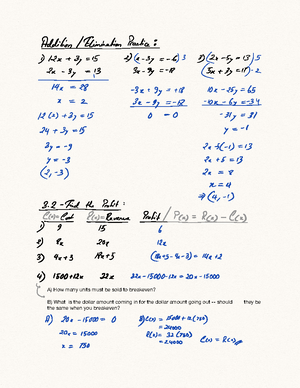 Addition / Elimination Practice:
1) 12x + 3y = 15   2) (x - 3y = -6) 3   3) (2x - 5y = 13) 5
2x - 3y = 13   3x - 9y = -18   (5x + 3y = 17) · 2
14x = 28   -3x + 9y = +18   10x - 25y = 65
x = 2   3x - 9y = -18   -10x - 6y = -34
12(2) + 3y = 15   0 = 0   -31y = 31
24 + 3y = 15   y = -1
3y = -9   2x - 5(-1) = 13
y = -3   2x + 5 = 13
(2, -3)   2x = 8
x = 4
⇒ (4, -1)
3.2 - Find the Profit:
C(x) = Cost   R(x) = Revenue   Profit / P(x) = R(x) - C(x)
1) 9   15   6
2) 8x   20x   12x
3) 4x + 3   18x + 5   (18x + 5 - 4x - 3) = 14x + 2
4) 1500 + 12x   32x   32x - 15000 - 12x = 20x - 15000
A) How many units must be sold to breakeven?
B) What is the dollar amount coming in for the dollar amount going out -- should they be
the same when you breakeven?
A) 20x - 15000 = 0   B) C(x) = 15000 + 12(750)
20x = 15000   = 24000
x = 750   R(x) = 32(750)
= 24000   C(x) = R(x)